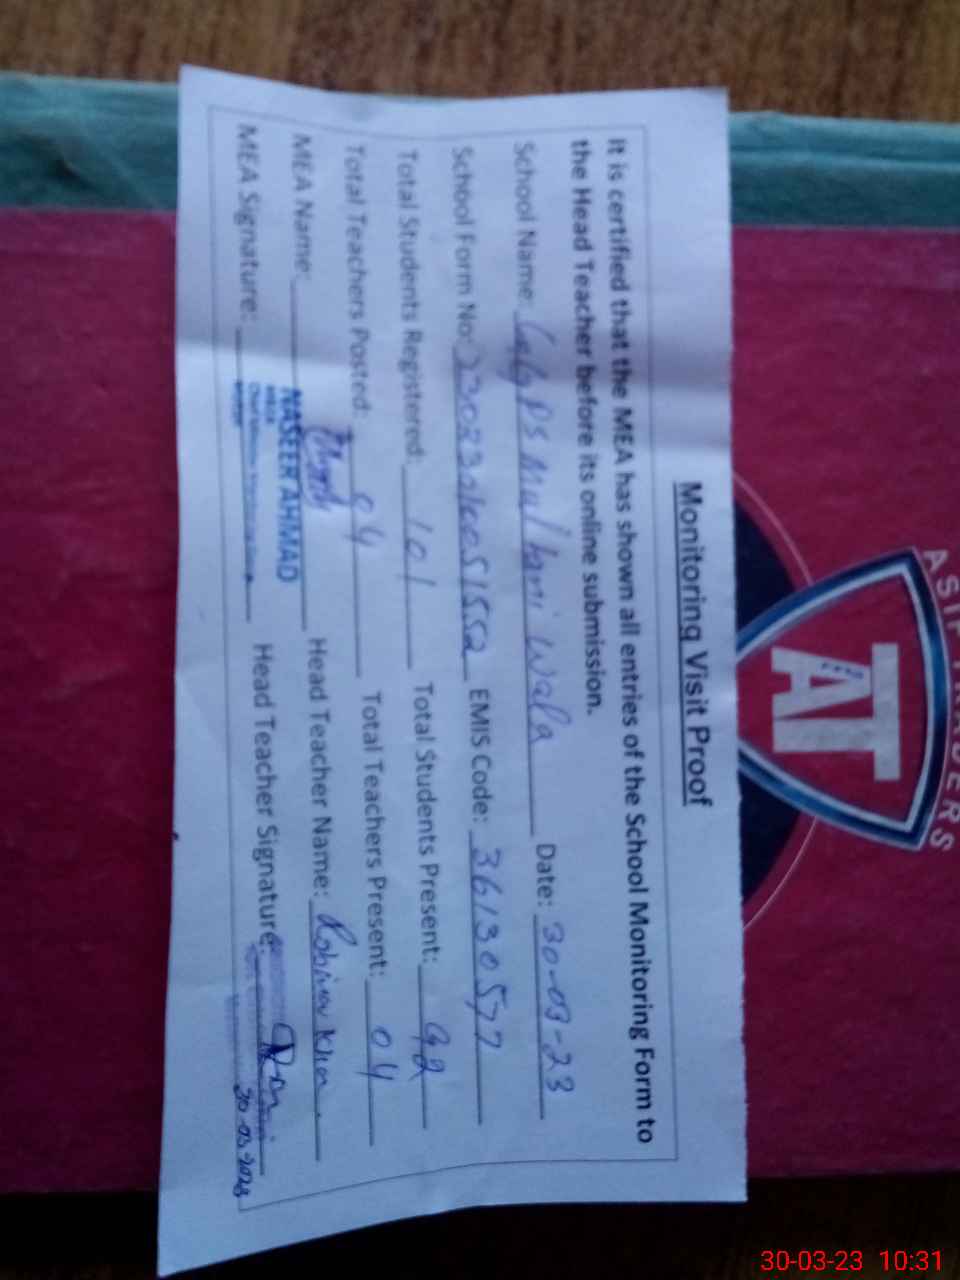 Monitoring Visit Proof
It is certified that the MEA has shown all entries of the School Monitoring Form to
the Head Teacher before its online submission.
School Name: PS Mul Wala Date: 30-03-23
School Form No: EMIS Code: 36130577
Total Students Registered: 101 Total Students Present: 92
Total Teachers Posted: 04 Total Teachers Present: 04
MEA Name: NASEER AHMAD Head Teacher Name: Khan
MEA Signature: Head Teacher Signature:
30-03-2023
ASIF TRADERS
AT
30-03-23 10:31